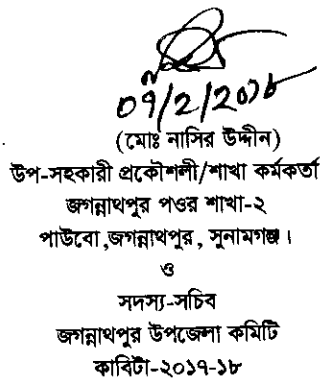 ০৭/2/2০১৮
(মোঃ নাসির উদ্দীন)
উপ-সহকারী প্রকৌশলী/শাখা কর্মকর্তা
জগন্নাথপুর পওর শাখা-২
পাউবো,জগন্নাথপুর, সুনামগঞ্জ।
ও
সদস্য-সচিব
জগন্নাথপুর উপজেলা কমিটি
কাবিটা-২০১৭-১৮